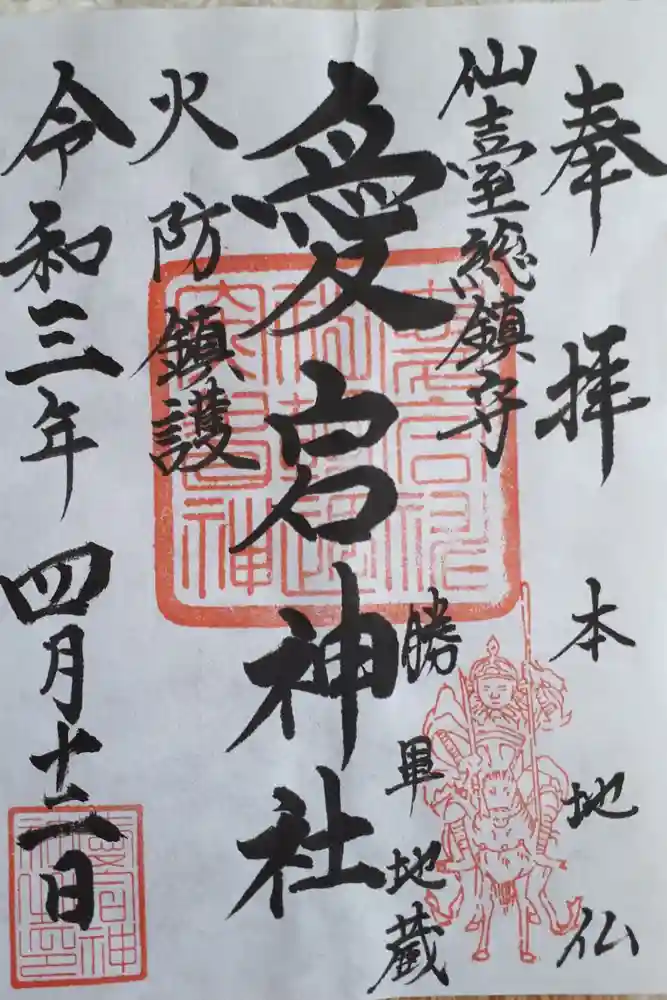 奉拝
本地仏
仙臺総鎮守
勝軍地蔵
愛宕神社
火防鎮護
令和三年四月十二日